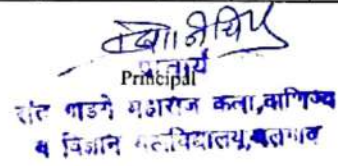 प्राचार्य
Principal
संत गाडगे महाराज कला,वाणिज्य
व विज्ञान महाविद्यालय,वलगाव